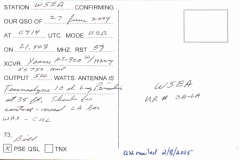 STATION W5EA CONFIRMING
OUR QSO OF 27 June 2004
AT 0414 UTC. MODE USB
ON 21,408 MHZ. RST 59
XCVR: Yaesu FT-920 W/Henry
OUTPUT 500 WATTS. ANTENNA IS
Tennadyne 10 el. Log Periodic
at 75 ft. Thanks for
contact - need LA for
WAS - CRL
73, Bill
X PSE QSL TNX
W5EA
UR # 3A-LA
QSL mailed 2/8/2005